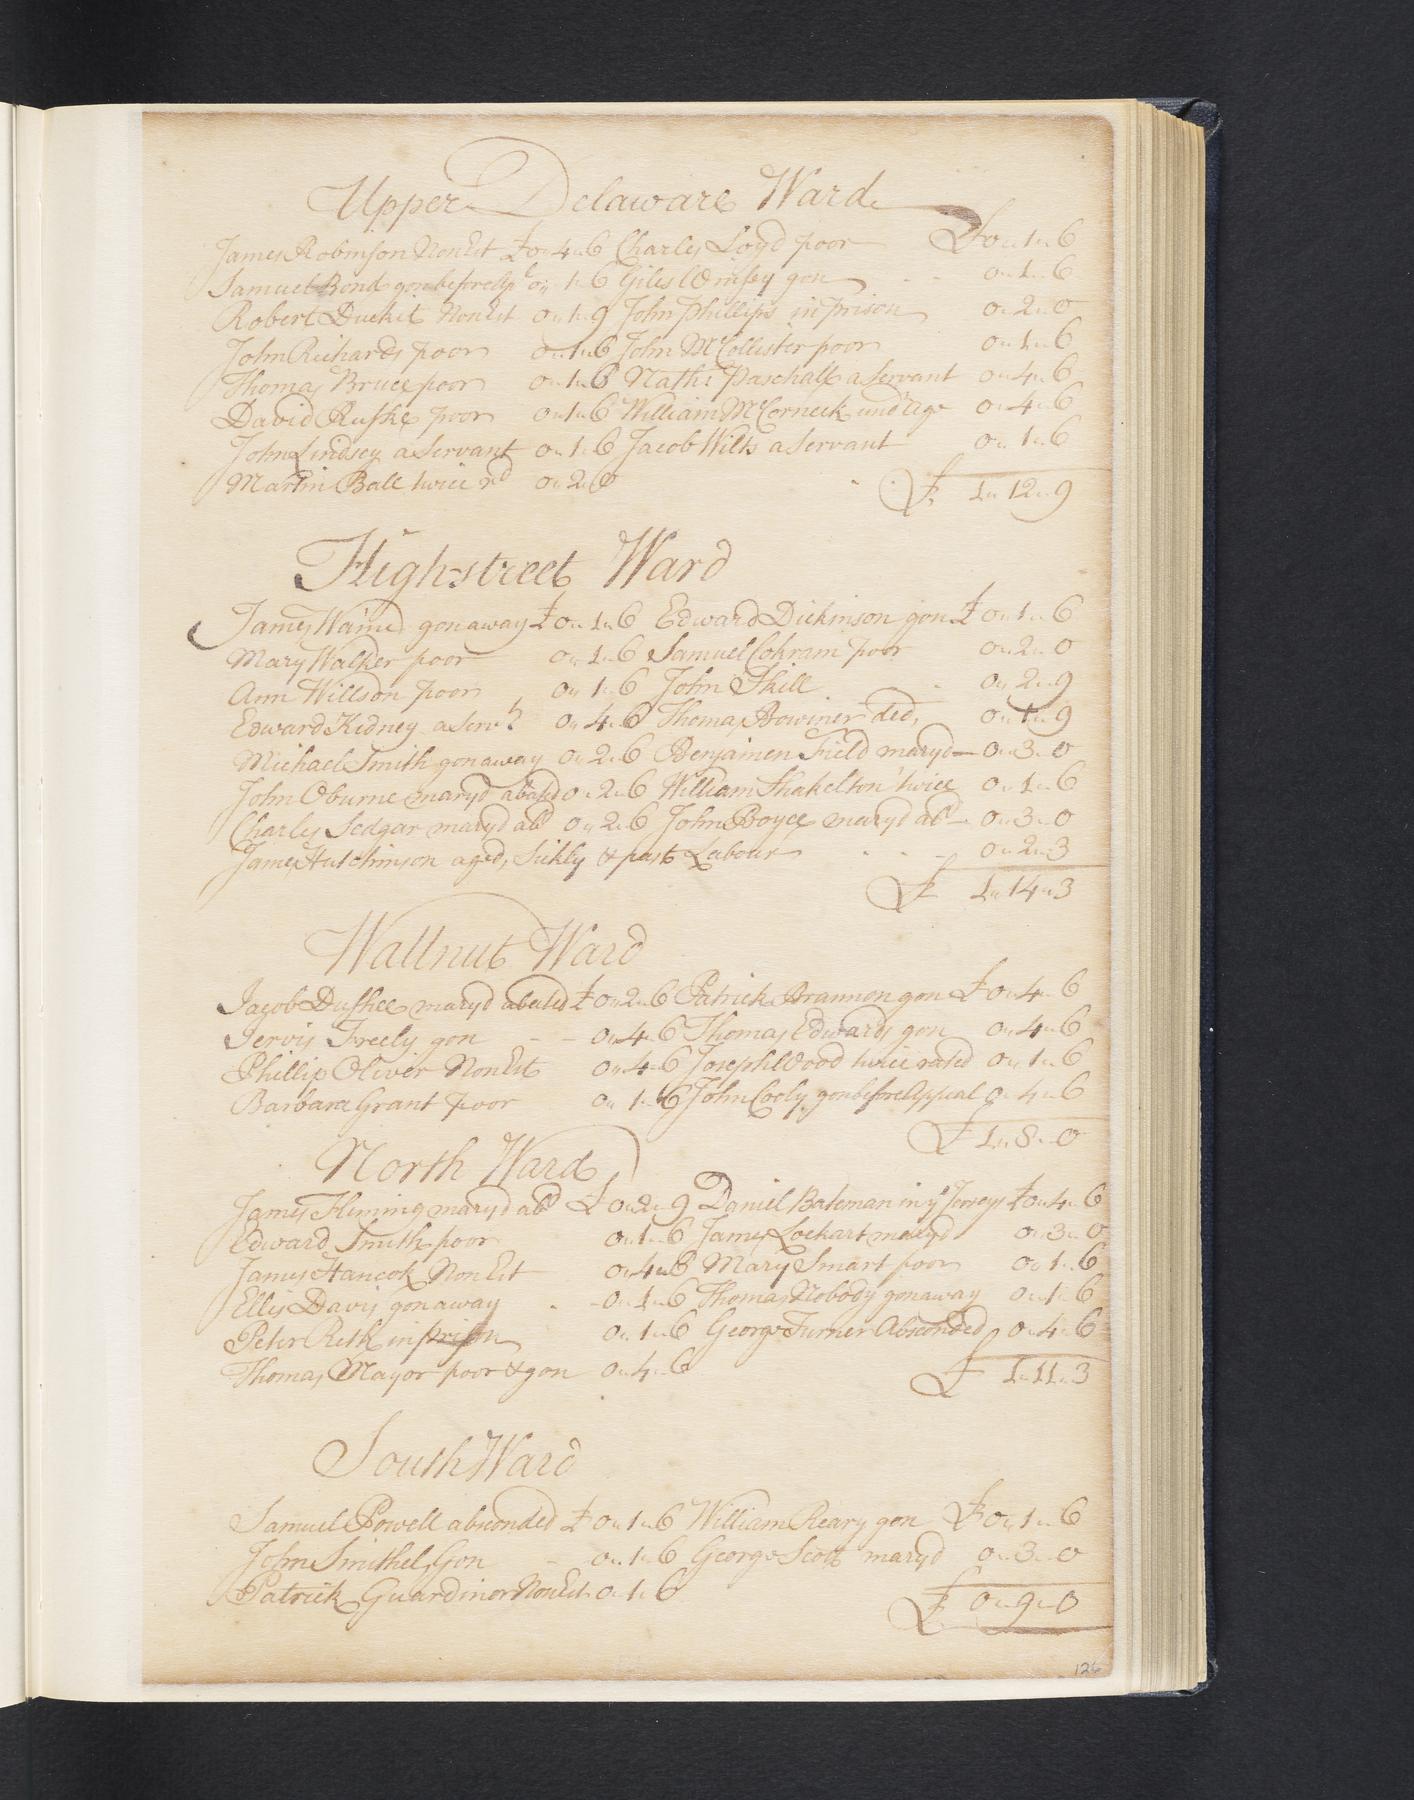 Upper Delaware Ward
James Robinson Non Est £ 0 " 4 " 6 Charles Loyd poor £ 0 " 1 " 6
Samuel Bond gon before 0 " 1 " 6 Giles gon 0 " 1 " 6
Robert Duckit Non Est 0 " 1 " 9 John Phillips in prison 0 " 2 " 0
John Richards poor 0 " 1 " 6 John McCollister poor 0 " 1 " 6
Thomas Bruce poor 0 " 1 " 6 Nath: Paschall a Servant 0 " 4 " 6
David poor 0 " 1 " 6 William McCorneck und age 0 " 4 " 6
John Lindsey a Servant 0 " 1 " 6 Jacob Wilts a Servant 0 " 1 " 6
Martin Ball twice rd 0 " 2 " 0 £ 1 " 12 " 9
Highstreet Ward
James gon away £ 0 " 1 " 6 Edward Dickinson gon £ 0 " 1 " 6
Mary Walker poor 0 " 1 " 6 Samuel Cohram poor 0 " 2 " 0
Ann Willson poor 0 " 1 " 6 John Skill 0 " 2 " 9
Edward Kidney a Servt 0 " 4 " 6 Thomas ded 0 " 1 " 9
Michael Smith gon away 0 " 2 " 6 Benjamen Field maryd 0 " 3 " 0
John Oburne maryd abated 0 " 2 " 6 William Shakelton twice 0 " 1 " 6
Charles Sedgar maryd abd 0 " 2 " 6 John Boyce maryd abd 0 " 3 " 0
James Hutchinson aged, Sickly & past Labour 0 " 2 " 3
£ 1 " 14 " 3
Wallnut Ward
Jacob Duffhee maryd abated £ 0 " 2 " 6 Patrick Brannon gon £ 0 " 4 " 6
Jervis Freely gon 0 " 4 " 6 Thomas Edwards gon 0 " 4 " 6
Phillip Oliver Non Est 0 " 4 " 6 Joseph Wood twice rated 0 " 1 " 6
Barbara Grant poor 0 " 1 " 6 John Cooly gon before Appeal 0 " 4 " 6
£ 1 " 8 " 0
North Ward
James Fleming maryd abd £ 0 " 2 " 9 Daniel Bateman in ye Jerseys £ 0 " 4 " 6
Edward Smith poor 0 " 1 " 6 James Lockart maryd 0 " 3 " 0
James Hancok Non Est 0 " 4 " 6 Mary Smart poor 0 " 1 " 6
Ellis Davis gon away 0 " 1 " 6 Thomas Nobody gon away 0 " 1 " 6
Peter Reth in prison 0 " 1 " 6 George Turner Absconded 0 " 4 " 6
Thomas Mayor poor & gon 0 " 4 " 6 £ 1 " 11 " 3
South Ward
Samuel Powell absconded £ 0 " 1 " 6 William Reary gon £ 0 " 1 " 6
John Smithel Gon 0 " 1 " 6 George Scott maryd 0 " 3 " 0
Patrick Guardinor Non Est 0 " 1 " 6 £ 0 " 9 " 0
126